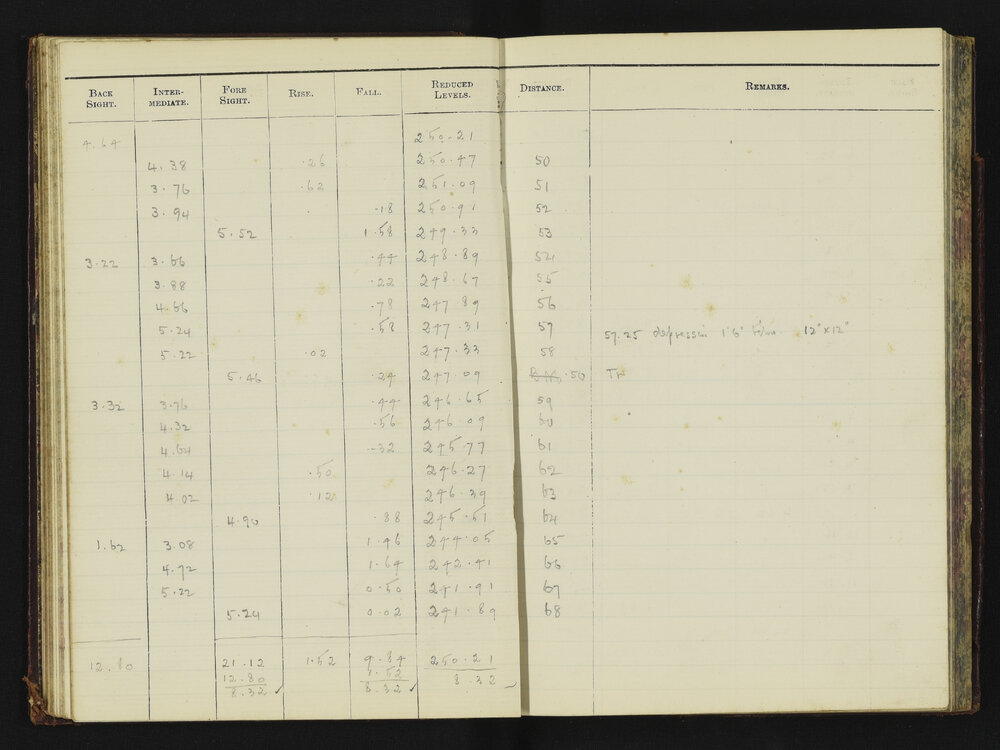 BACK SIGHT. INTER-MEDIATE. FORE SIGHT. RISE. FALL. REDUCED LEVELS. DISTANCE. REMARKS.
4.64 250.21
4.38 .26 250.47 50
3.76 .62 251.09 51
3.94 .18 250.91 52
5.52 1.58 249.33 53
3.22 3.66 .44 248.89 54
3.88 .22 248.67 55
4.66 .78 247.89 56
5.24 .58 247.31 57 57.25 depression 1'6" 12"x12"
5.22 .02 247.33 58
5.46 .24 247.09 .50 Tr
3.32 3.76 .44 246.65 59
4.32 .56 246.09 60
4.64 .32 245.77 61
4.14 .50 246.27 62
4.02 .12 246.39 63
4.90 .88 245.51 64
1.62 3.08 1.46 244.05 65
4.72 1.64 242.41 66
5.22 0.50 241.91 67
5.24 0.02 241.89 68
12.80 21.12 1.52 9.84 250.21
12.80 1.52 8.32
8.32 8.32